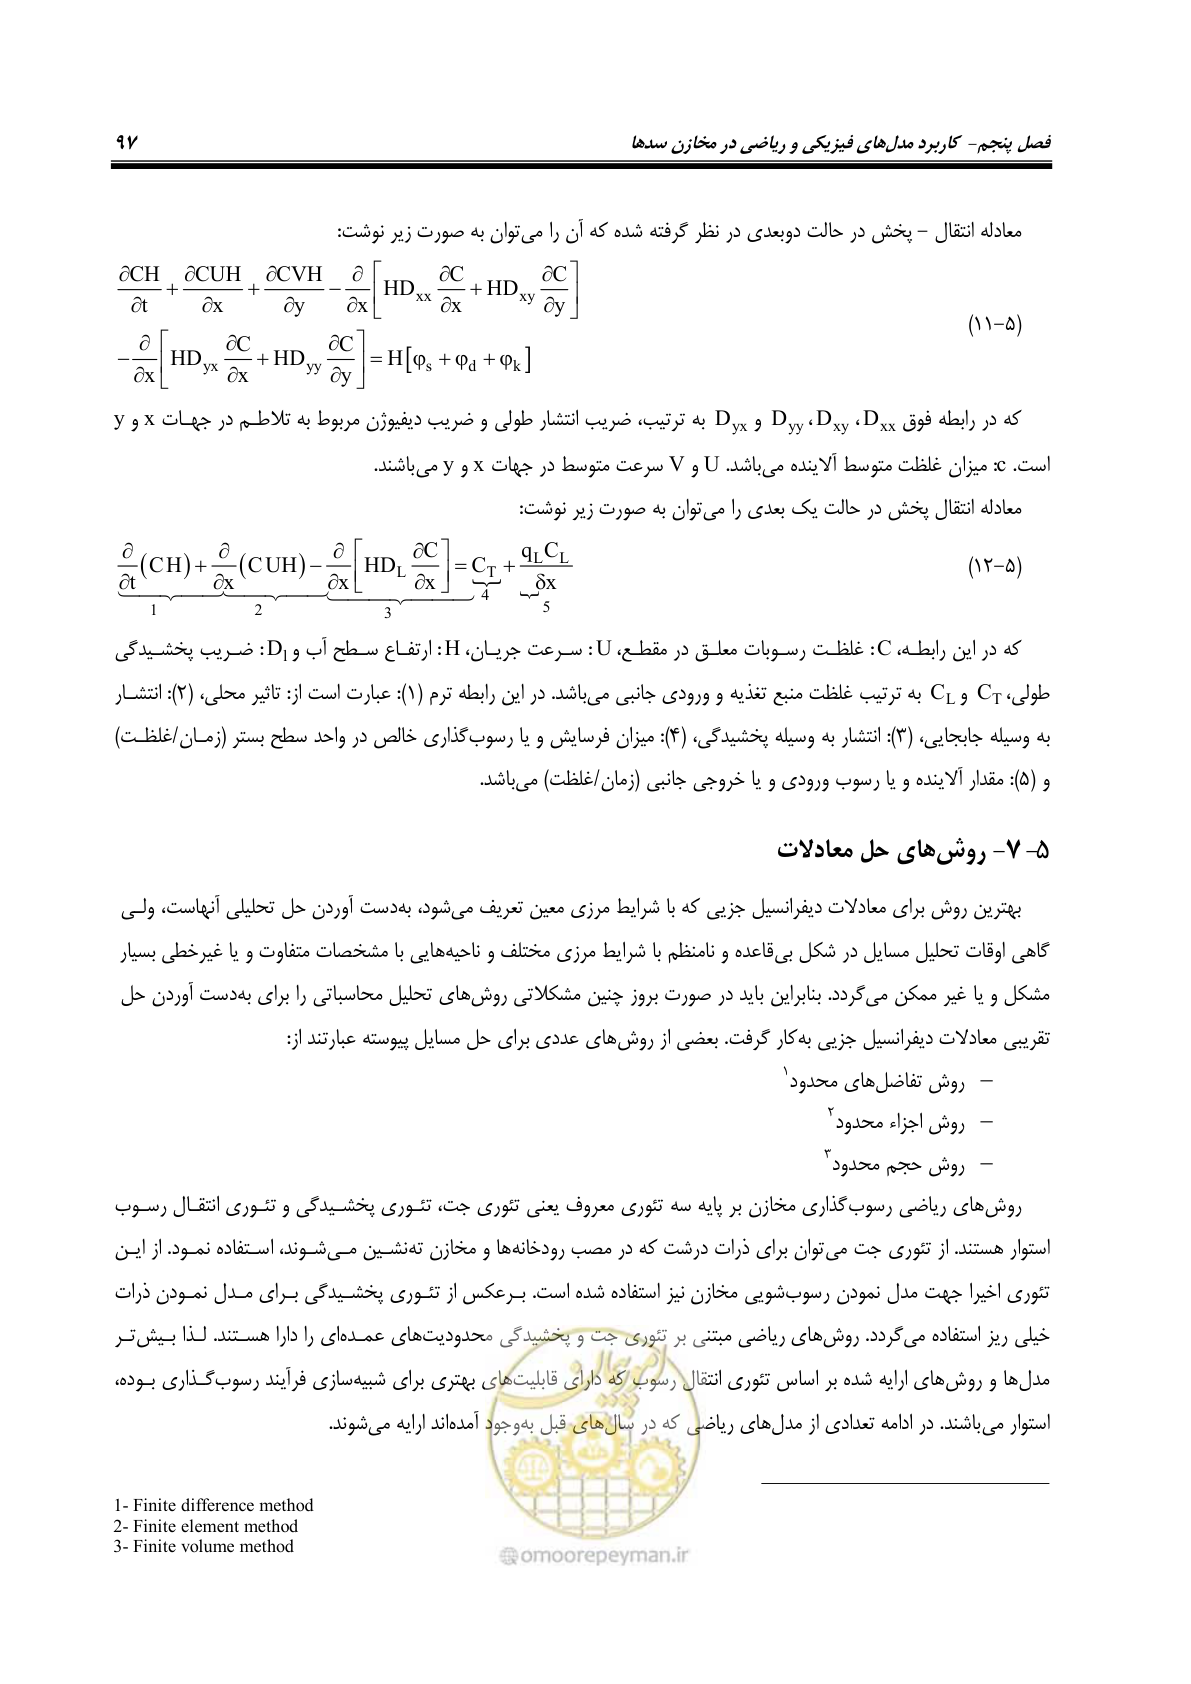 فصل پنجم- کاربرد مدل‌های فیزیکی و ریاضی در مخازن سدها ۹۷
معادله انتقال – پخش در حالت دوبعدی در نظر گرفته شده که آن را می‌توان به صورت زیر نوشت:
∂CH/∂t + ∂CUH/∂x + ∂CVH/∂y − ∂/∂x [HD_xx ∂C/∂x + HD_xy ∂C/∂y]
(۵-۱۱)
− ∂/∂x [HD_yx ∂C/∂x + HD_yy ∂C/∂y] = H[φ_s + φ_d + φ_k]
که در رابطه فوق D_xx، D_xy، D_yy و D_yx به ترتیب، ضریب انتشار طولی و ضریب دیفیوژن مربوط به تلاطم در جهات x و y
است. c: میزان غلظت متوسط آلاینده می‌باشد. U و V سرعت متوسط در جهات x و y می‌باشند.
معادله انتقال پخش در حالت یک بعدی را می‌توان به صورت زیر نوشت:
∂/∂t (CH) + ∂/∂x (CUH) − ∂/∂x [HD_L ∂C/∂x] = C_T + q_L C_L/δx (۵-۱۲)
1 2 3 4 5
که در این رابطه، C: غلظت رسوبات معلق در مقطع، U: سرعت جریان، H: ارتفاع سطح آب و D_l: ضریب پخشیدگی
طولی، C_T و C_L به ترتیب غلظت منبع تغذیه و ورودی جانبی می‌باشد. در این رابطه ترم (۱): عبارت است از: تاثیر محلی، (۲): انتشار
به وسیله جابجایی، (۳): انتشار به وسیله پخشیدگی، (۴): میزان فرسایش و یا رسوب‌گذاری خالص در واحد سطح بستر (زمان/غلظت)
و (۵): مقدار آلاینده و یا رسوب ورودی و یا خروجی جانبی (زمان/غلظت) می‌باشد.
۵- ۷- روش‌های حل معادلات
بهترین روش برای معادلات دیفرانسیل جزیی که با شرایط مرزی معین تعریف می‌شود، به‌دست آوردن حل تحلیلی آنهاست، ولی
گاهی اوقات تحلیل مسایل در شکل بی‌قاعده و نامنظم با شرایط مرزی مختلف و ناحیه‌هایی با مشخصات متفاوت و یا غیرخطی بسیار
مشکل و یا غیر ممکن می‌گردد. بنابراین باید در صورت بروز چنین مشکلاتی روش‌های تحلیل محاسباتی را برای به‌دست آوردن حل
تقریبی معادلات دیفرانسیل جزیی به‌کار گرفت. بعضی از روش‌های عددی برای حل مسایل پیوسته عبارتند از:
– روش تفاضل‌های محدود۱
– روش اجزاء محدود۲
– روش حجم محدود۳
روش‌های ریاضی رسوب‌گذاری مخازن بر پایه سه تئوری معروف یعنی تئوری جت، تئوری پخشیدگی و تئوری انتقال رسوب
استوار هستند. از تئوری جت می‌توان برای ذرات درشت که در مصب رودخانه‌ها و مخازن ته‌نشین می‌شوند، استفاده نمود. از این
تئوری اخیرا جهت مدل نمودن رسوب‌شویی مخازن نیز استفاده شده است. برعکس از تئوری پخشیدگی برای مدل نمودن ذرات
خیلی ریز استفاده می‌گردد. روش‌های ریاضی مبتنی بر تئوری جت و پخشیدگی محدودیت‌های عمده‌ای را دارا هستند. لذا بیش‌تر
مدل‌ها و روش‌های ارایه شده بر اساس تئوری انتقال رسوب که دارای قابلیت‌های بهتری برای شبیه‌سازی فرآیند رسوب‌گذاری بوده،
استوار می‌باشند. در ادامه تعدادی از مدل‌های ریاضی که در سال‌های قبل به‌وجود آمده‌اند ارایه می‌شوند.
1- Finite difference method
2- Finite element method
3- Finite volume method
امور پیمان
@omoorepeyman.ir